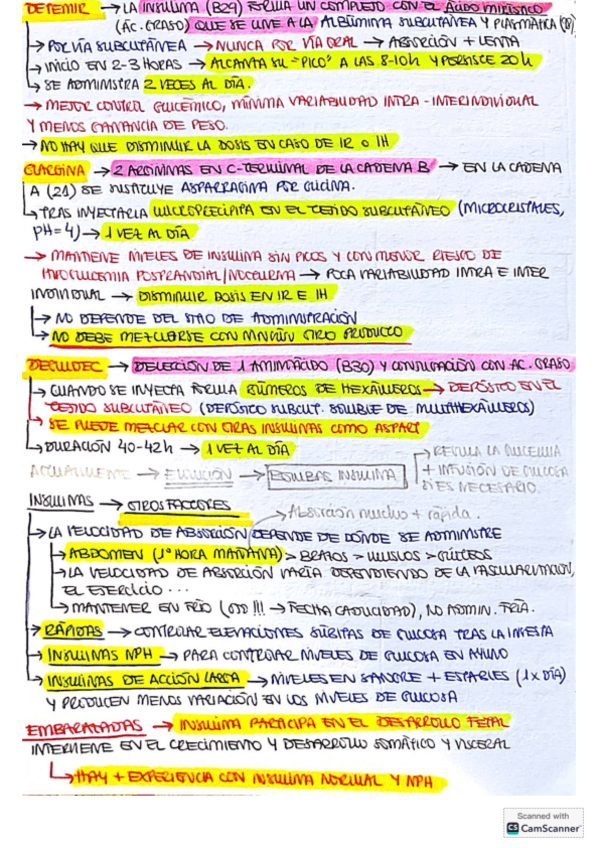 DETEMIR → LA INSULINA (B29) FORMA UN COMPLEJO CON EL ÁCIDO MIRÍSTICO
(ÁC. GRASO) QUE SE UNE A LA ALBÚMINA SUBCUTÁNEA Y PLASMÁTICA
→ POR VÍA SUBCUTÁNEA → NUNCA POR VÍA ORAL → ABSORCIÓN + LENTA
→ INICIO EN 2-3 HORAS → ALCANZA SU "PICO" A LAS 8-10h Y PERSISTE 20h
→ SE ADMINISTRA 2 VECES AL DÍA.
→ MEJOR CONTROL GLUCÉMICO, MÍNIMA VARIABILIDAD INTRA-INTERINDIVIDUAL
Y MENOS GANANCIA DE PESO.
→ NO HAY QUE DISMINUIR LA DOSIS EN CASO DE IR O IH
GLARGINA → 2 ARGININAS EN C-TERMINAL DE LA CADENA B → EN LA CADENA
A (21) SE SUSTITUYE ASPARRAGINA POR GLICINA.
→ TRAS INYECTARLA MICROPRECIPITA EN EL TEJIDO SUBCUTÁNEO (MICROCRISTALES,
PH=4) → 1 VEZ AL DÍA
→ MANTIENE NIVELES DE INSULINA SIN PICOS Y CON MENOR RIESGO DE
HIPOGLUCEMIA POSTPRANDIAL/NOCTURNA → POCA VARIABILIDAD INTRA E INTER
INDIVIDUAL → DISMINUIR DOSIS EN IR E IH
→ NO DEPENDE DEL SITIO DE ADMINISTRACIÓN
→ NO DEBE MEZCLARSE CON NINGÚN OTRO PRODUCTO
DEGLUDEC → DELECIÓN DE 1 AMINOÁCIDO (B30) Y CONJUGACIÓN CON AC. GRASO
→ CUANDO SE INYECTA FORMA DÍMEROS DE HEXÁMEROS → DEPÓSITO EN EL
TEJIDO SUBCUTÁNEO (DEPÓSITO SUBCUT. SOLUBLE DE MULTIHEXÁMEROS)
→ SE PUEDE MEZCLAR CON OTRAS INSULINAS COMO ASPART
→ DURACIÓN 40-42h → 1 VEZ AL DÍA
ACTUALMENTE → EVOLUCIÓN → BOMBAS INSULINA → REGULA LA GLUCEMIA
+ INFUSIÓN DE GLUCOSA
SI ES NECESARIO.
INSULINAS → OTROS FACTORES
Absorción mucho + rápida.
→ LA VELOCIDAD DE ABSORCIÓN DEPENDE DE DÓNDE SE ADMINISTRE
→ ABDOMEN (1ª HORA MAÑANA) > BRAZOS > MUSLOS > GLÚTEOS
→ LA VELOCIDAD DE ABSORCIÓN VARÍA DEPENDIENDO DE LA VASCULARIZACIÓN,
EL EJERCICIO...
→ MANTENER EN FRÍO (OJO!!! → FECHA CADUCIDAD), NO ADMIN. FRÍA.
→ RÁPIDAS → CONTROLAR ELEVACIONES SÚBITAS DE GLUCOSA TRAS LA INGESTA
→ INSULINAS NPH → PARA CONTROLAR NIVELES DE GLUCOSA EN AYUNO
→ INSULINAS DE ACCIÓN LARGA → NIVELES EN SANGRE + ESTABLES (1 x DÍA)
Y PRODUCEN MENOS VARIACIÓN EN LOS NIVELES DE GLUCOSA
EMBARAZADAS → INSULINA PARTICIPA EN EL DESARROLLO FETAL
INTERVIENE EN EL CRECIMIENTO Y DESARROLLO SOMÁTICO Y VISCERAL
→ HAY + EXPERIENCIA CON INSULINA NORMAL Y NPH
Scanned with
CS CamScanner